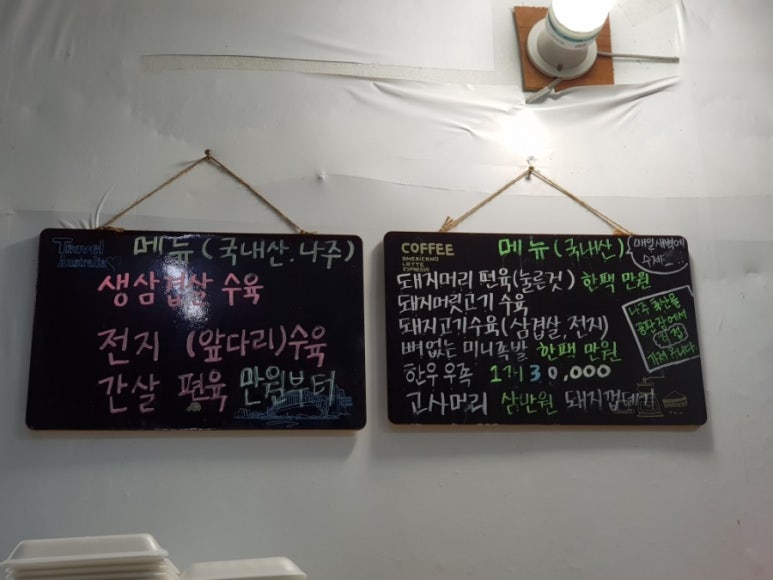 Travel
Australia
메뉴 (국내산.나주)
생삼겹살 수육
전지 (앞다리)수육
간살 편육 만원부터
COFFEE
AMERICANO
LATTE
ESPRESSO
메뉴 (국내산)
매일새벽에
수제
돼지머리 편육(눌른것) 한팩 만원
돼지머릿고기 수육
돼지고기수육(삼겹살,전지)
뼈없는 미니족발 한팩 만원
한우 우족 1개 30,000
고사머리 삼만원 돼지껍데기
나주 축산물
공판장에서
직접
가져옵니다